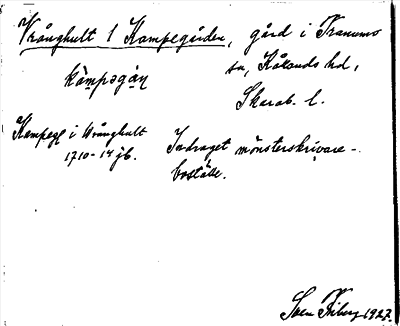 Vrånghult 1 Kampegården, gård i Tranums
sn, Kålands hd,
kàmpəgàn
Skarab. l.
Kampeg. i Wrånghult
1710-14 jb.
Indraget mönsterskrivare-
boställe.
Sven Friberg 1927.